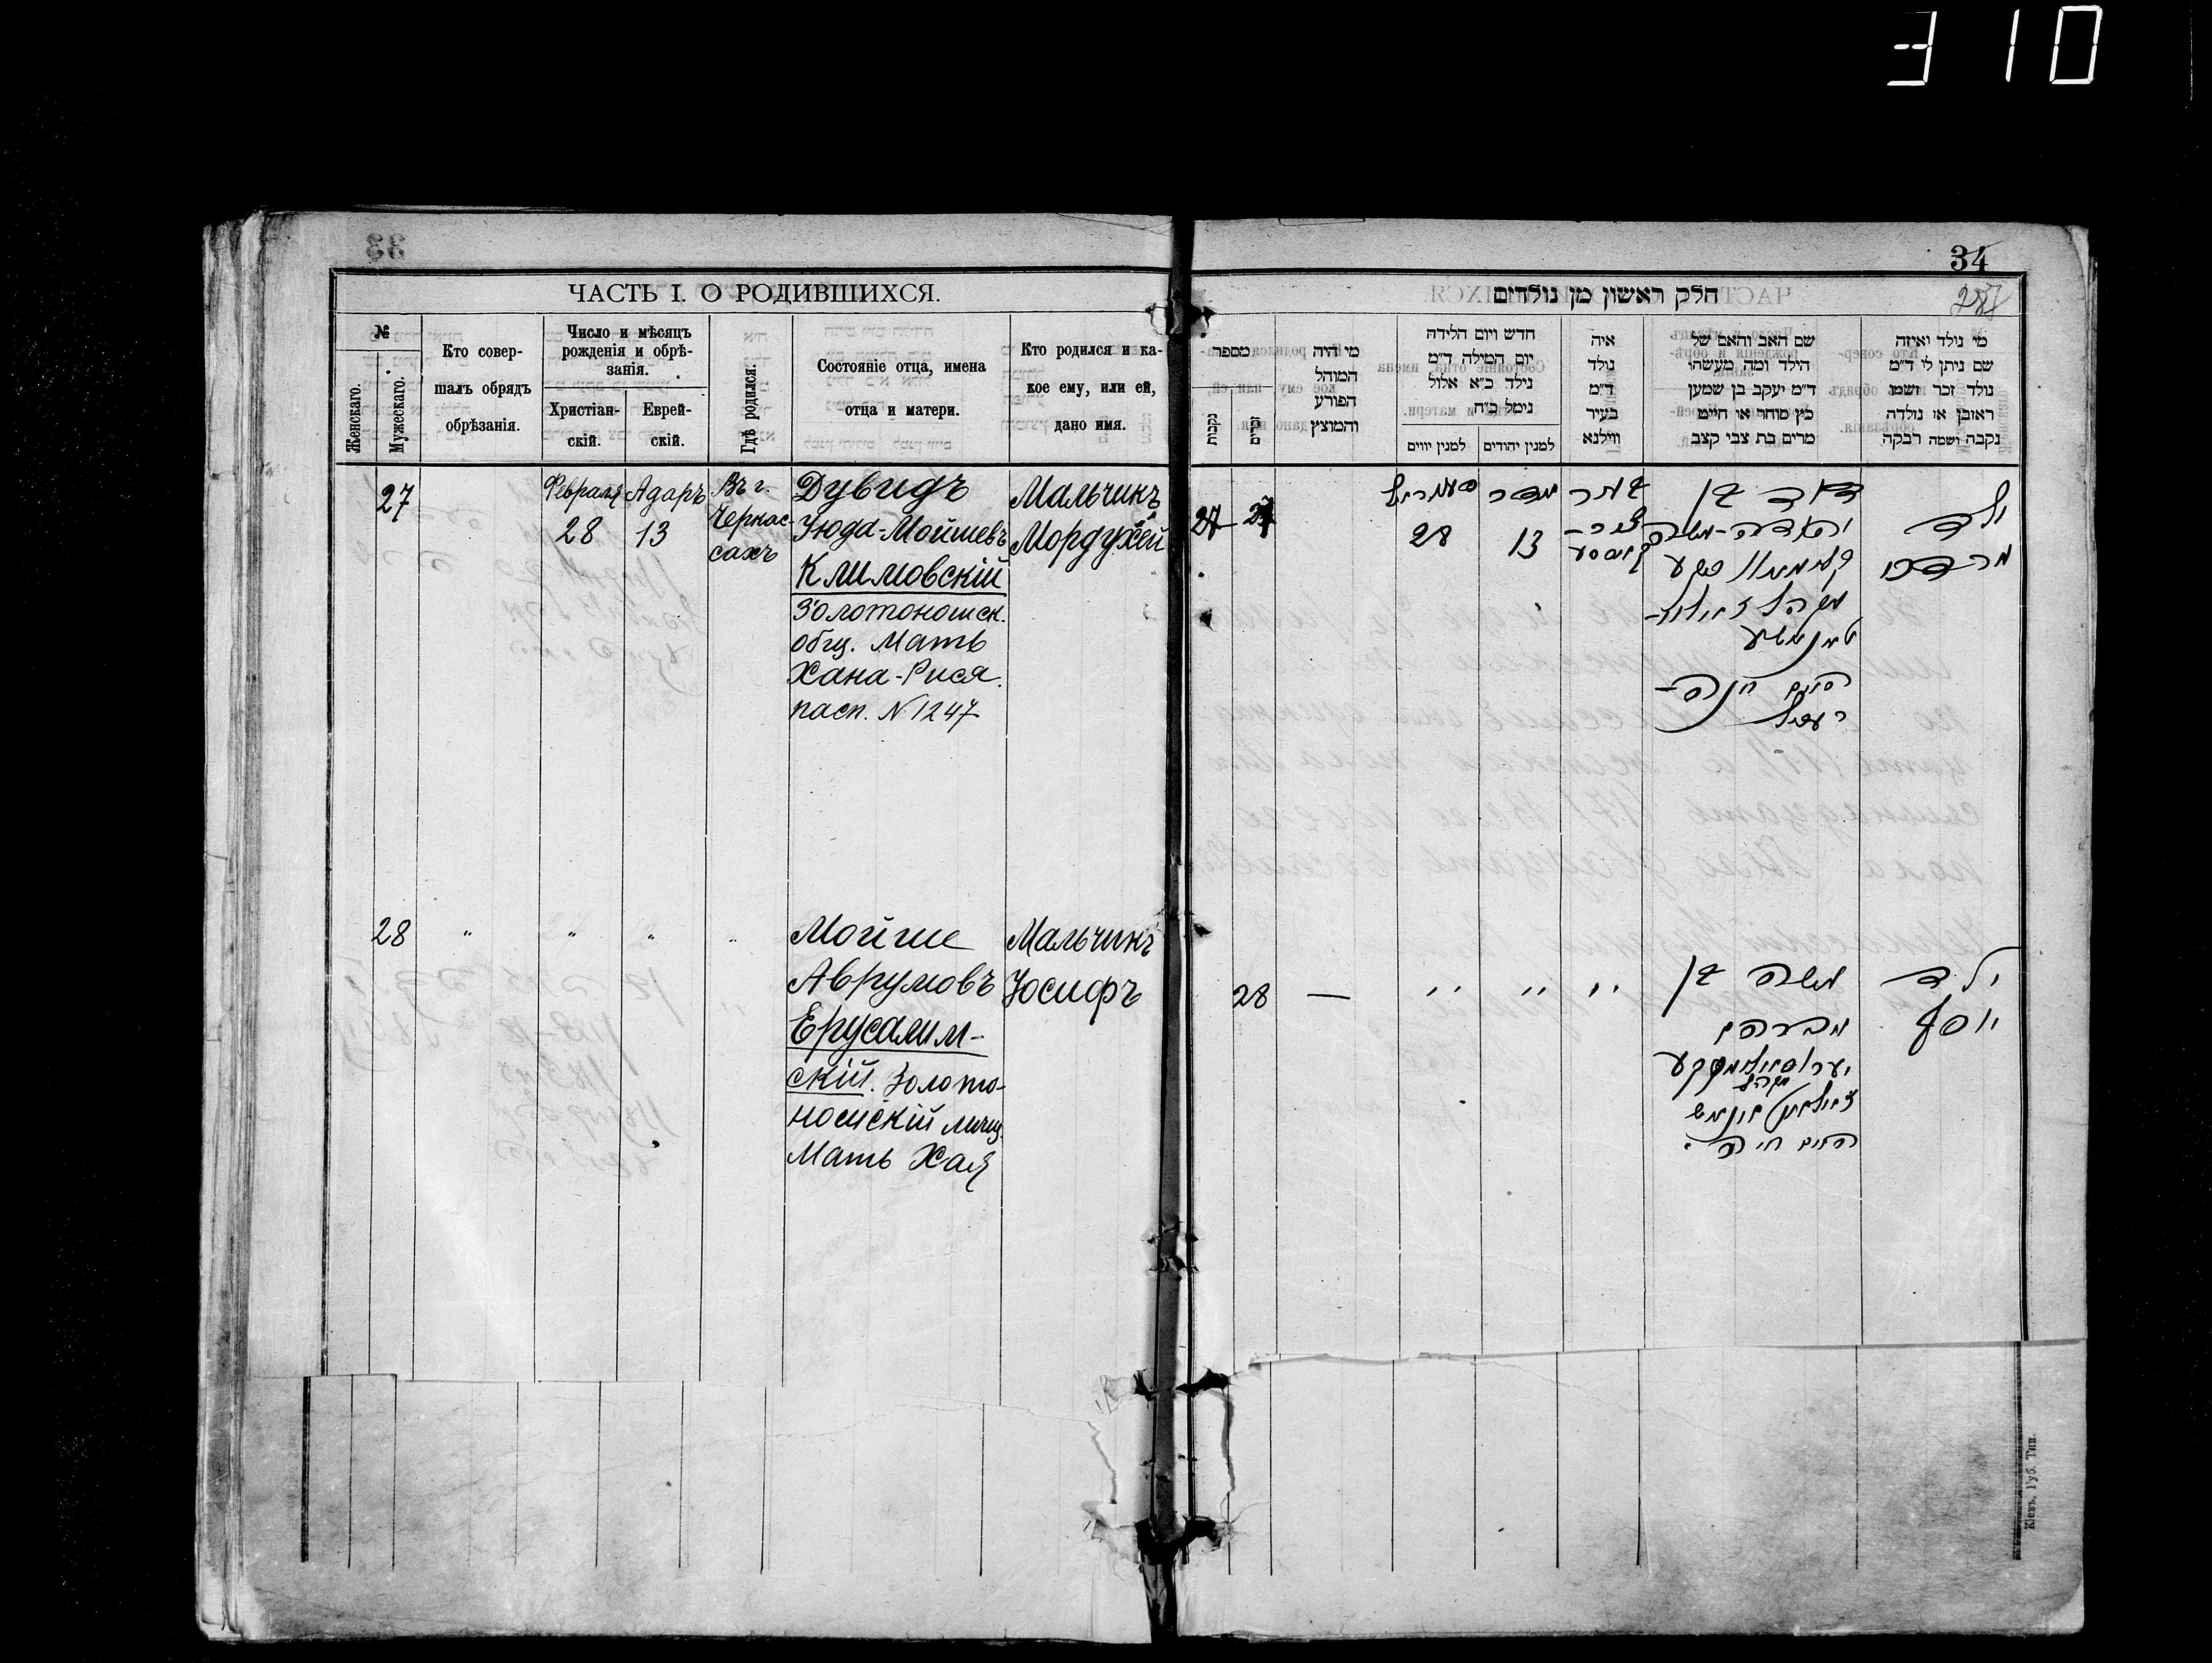 310
34
ЧАСТЬ I. О РОДИВШИХСЯ.
№
Женскаго.
Мужескаго.
Кто совер-
шалъ обрядъ
обрѣзанія.
Число и мѣсяцъ
рожденія и обрѣ-
занія.
Христіан-
скій.
Еврей-
скій.
Гдѣ родился.
Состояніе отца, имена
отца и матери.
Кто родился и ка-
кое ему, или ей,
дано имя.
27
Февраля
28
Адаръ
13
Въ г.
Черкас-
сахъ
Дувидъ
Іюда-Мойшевъ
Климовскій
Золотоношск.
общ. Мать
Хана-Рися.
пасп. № 1247
Мальчикъ
Мордухей
28
" " " "
Мойше
Аврумовъ
Ерусалим-
скій. Золото-
ношскій мѣщ.
Мать Хая
Мальчикъ
Іосифъ
חלק ראשון מן נולדים
מי נולד ואיזה
שם ניתן לו ד"מ
נולד זכר ושמו
ראובן או נולדה
נקבה ושמה רבקה
שם האב והאם של
הילד ומה מעשהו
ד"מ יעקב בן שמעון
כץ סוחר או חייט
מרים בת צבי קצב
איה
נולד
ד"מ
בעיר
ווילנא
חדש ויום הלידה
יום המילה ד"מ
נולד כ"א אלול
נימל כ"ח
למנין יהודים
למנין יווים
מי היה
המוהל
הפורע
והמוצץ
מספר
זכרים
נקבות
ילד
מרדכי
דוד בן
יהודה-משה
13
28
27
ילד
יוסף
משה בן
אברהם
האם חיה
" " "
—
28
Кіевъ. Губ. Тип.